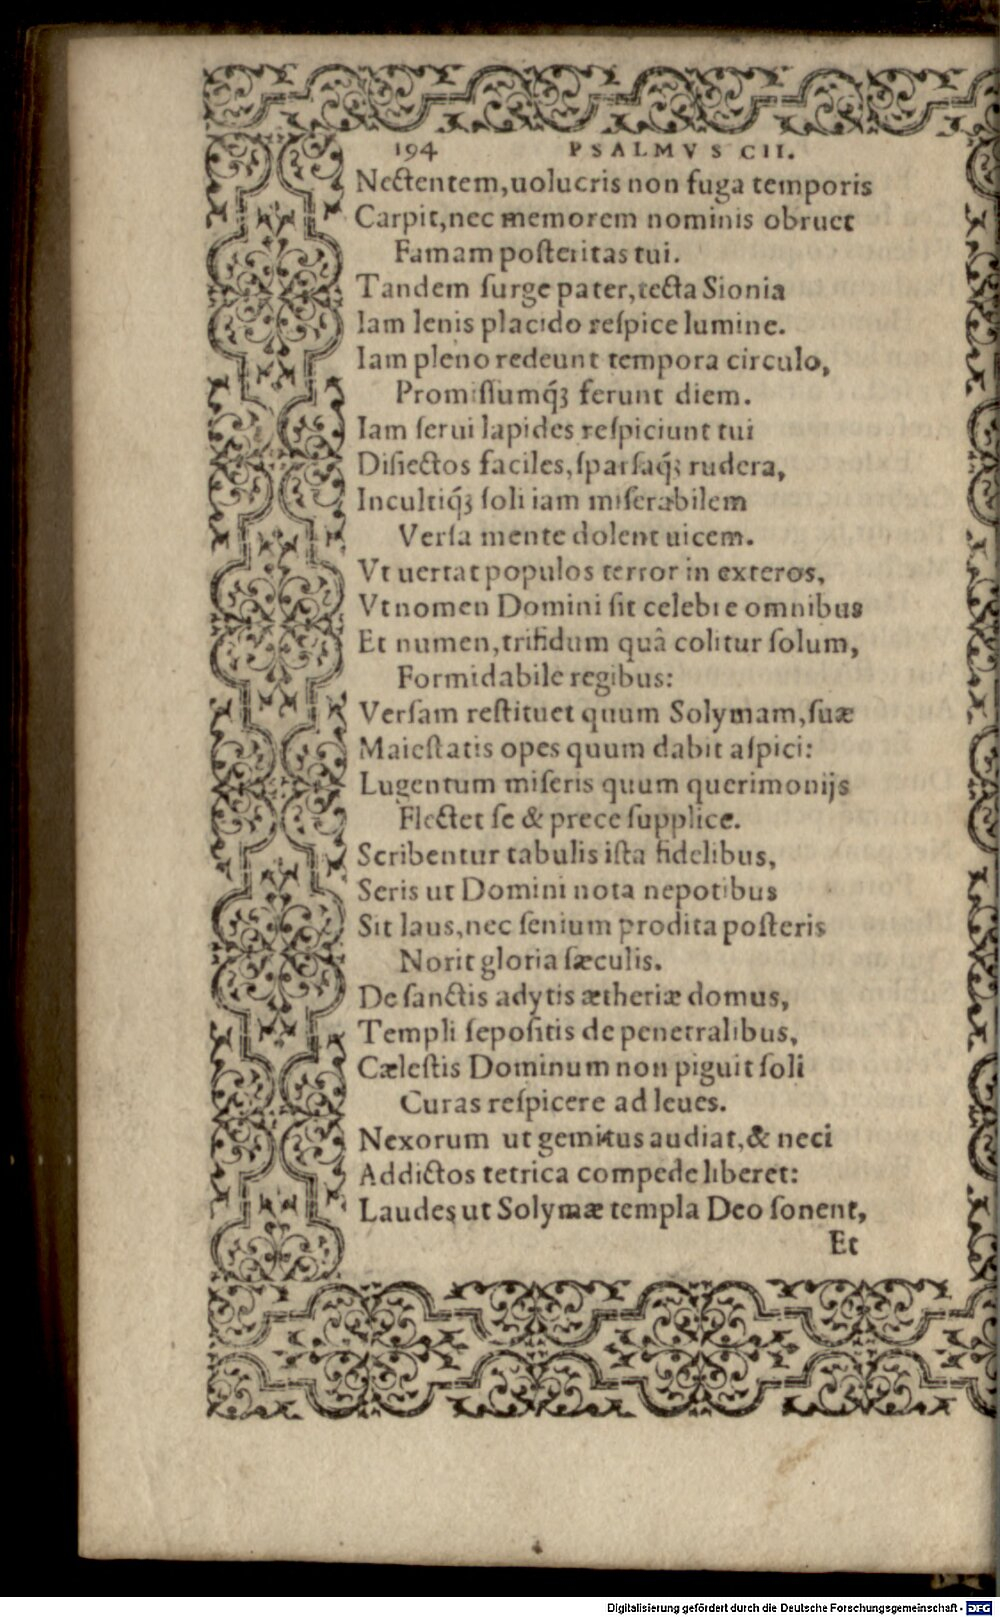 194 PSALMVS CII.
Nectentem, uolucris non fuga temporis
Carpit, nec memorem nominis obruet
Famam poſteritas tui.
Tandem ſurge pater, tecta Sionia
Iam lenis placido reſpice lumine.
Iam pleno redeunt tempora circulo,
Promiſſumq́ꝫ ferunt diem.
Iam ſerui lapides reſpiciunt tui
Diſiectos faciles, ſparſaq́ꝫ rudera,
Incultiq́ꝫ ſoli iam miſerabilem
Verſa mente dolent uicem.
Vt uertat populos terror in exteros,
Vt nomen Domini ſit celebre omnibus
Et numen, trifidum quâ colitur ſolum,
Formidabile regibus:
Verſam reſtituet quum Solymam, ſuæ
Maieſtatis opes quum dabit aſpici:
Lugentum miſeris quum querimonijs
Flectet ſe & prece ſupplice.
Scribentur tabulis iſta fidelibus,
Seris ut Domini nota nepotibus
Sit laus, nec ſenium prodita poſteris
Norit gloria ſæculis.
De ſanctis adytis ætheriæ domus,
Templi ſepoſitis de penetralibus,
Cæleſtis Dominum non piguit ſoli
Curas reſpicere ad leues.
Nexorum ut gemitus audiat, & neci
Addictos tetrica compede liberet:
Laudes ut Solymæ templa Deo ſonent,
Et
Digitalisierung gefördert durch die Deutsche Forschungsgemeinschaft - DFG